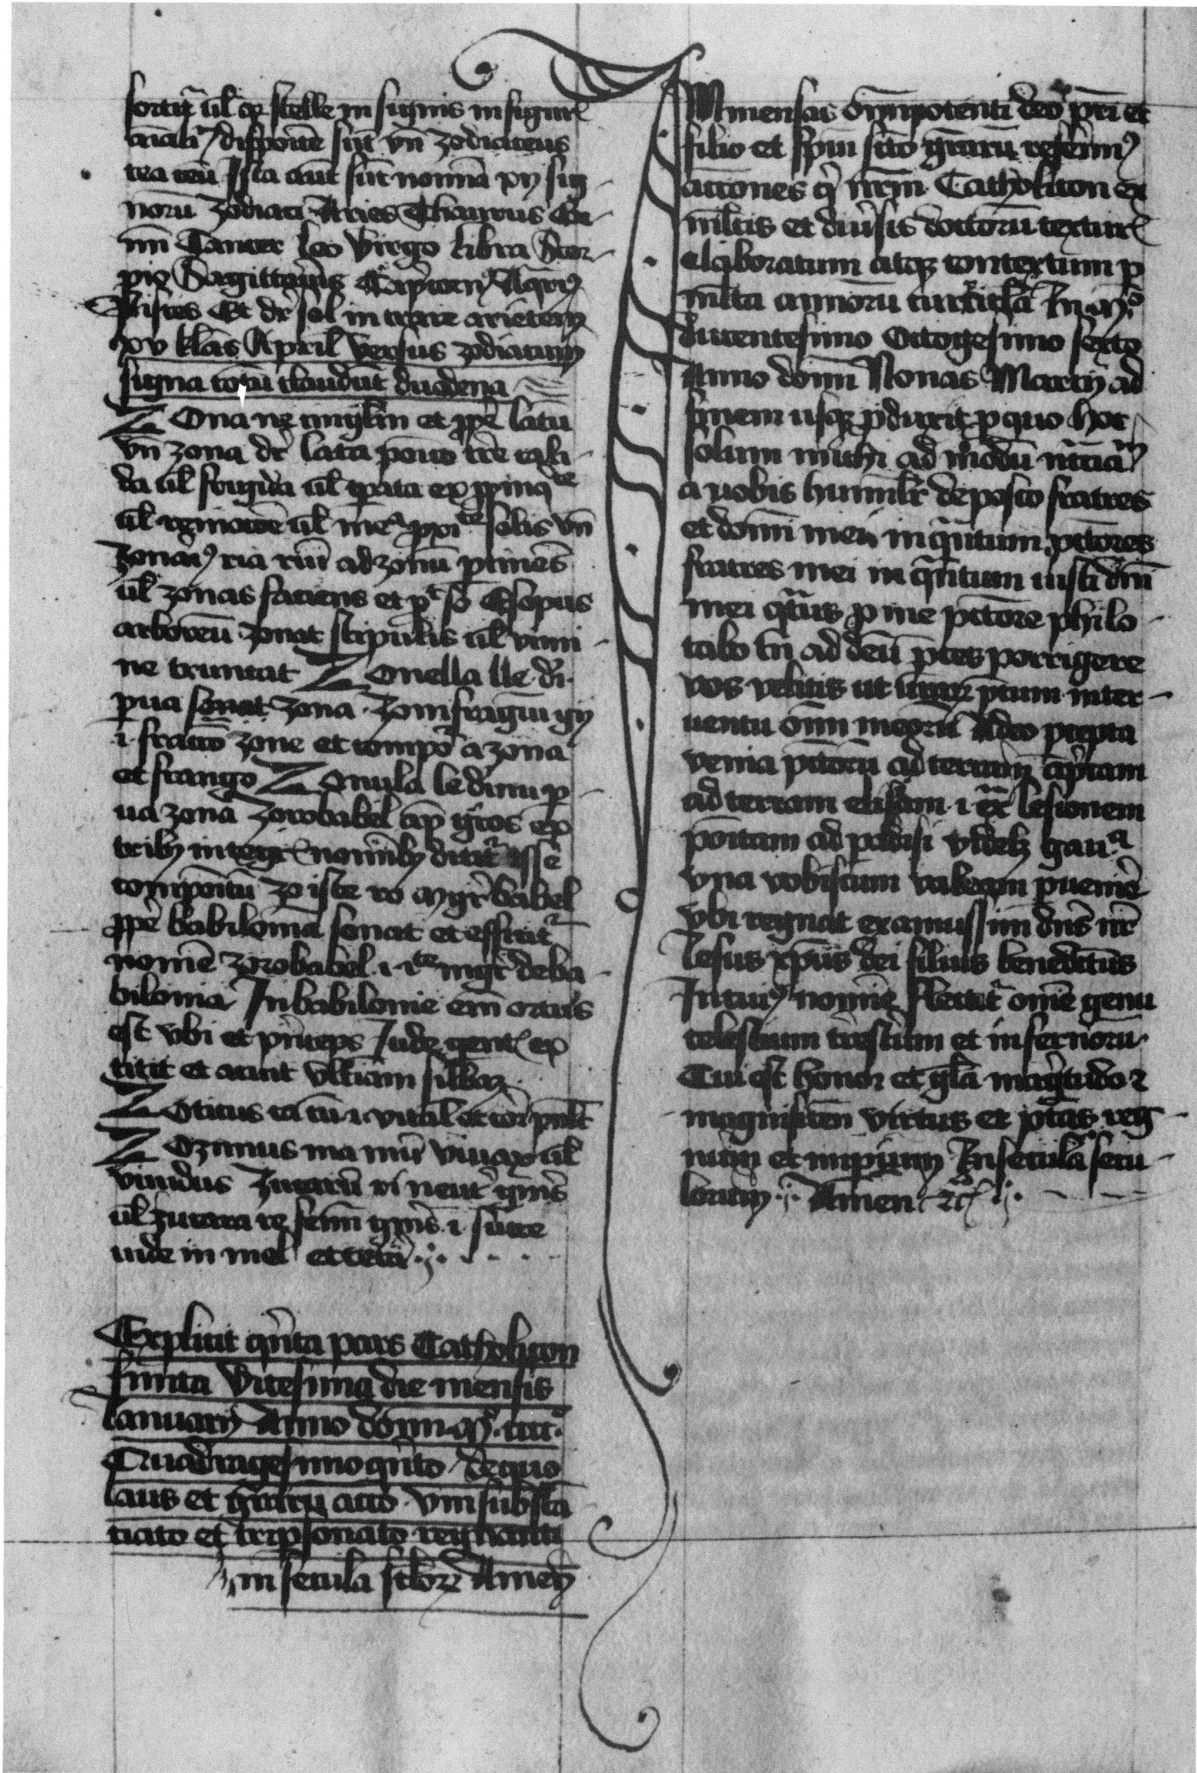 sortit᷑ ul̄ qꝫ stelle in signis in figur
dispoite sūt vn̄ zodiateus
tea teū Ista aūt sūt noīna xij sig
noru zodiaci Aries Thaurus Ge
mi Cancer leo virgo libra Scor
pio Sagittarius Capricorn Aqriꝰ
Pisces Et dr̄ sol intrare arietem
xv kl̄as April̄ versus zodiacum
signa totū claudūt duodena
Zona ne cingl̄m et ꝓpe latū
vn̄ zona dr̄ lata ꝑons tr̄e cali
da ul̄ frigida ul̄ tꝑata ex ꝓpinqte
ul̄ remotōe ul̄ solis vn̄
zonariꝰ ria riū ad zonā ꝑtinēs
ul̄ zonas faciens et Esopus
arboreū zonat stipulis ul̄ vimi
ne truncat Zonella lle di
ꝑua sonat zona zonifragiū gij
i fractō zone et compoˀ a zona
et frango Zonula le dimi ꝑ
ua zona Zorobabel ap̄ g̊cos ex
tribꝫ integr noīnibꝫ dicit᷑ esse
compoītū zo iste ro mgr̄ babel
ꝓpe babilonia sonat et efficit᷑
nomē zorobabel i iste mgr̄ de ba
bilonia In babilonie em̄ ortus
est vbi et pr̄nceps Iude gentˢ ex
titit et acuit vltimam sillabā
Zoticus ca cū i vital̄
Zozimus ma mū vivax ul̄
viuidus Zucarū ri neut g̊nis
ul̄ zucara re femī g̊nis i sucre
vide in mel et ceta
Explicit qn̄ta pars Catholicon
finita Vicesima die mensis
Ianuarij Anno domi mo cccco
Quadragesimo qn̄to de quo
laus et gr̄arū actō vni substā
ciato et trip̄sonato regnanti
in secula sc̄lorꝫ Amen
IMmensas om̄ipotenti deo pr̄i et
filio et spūi scō gr̄arū referimꝰ
actiones qͥ nr̄m Catholicon ex
mltis et diuˢsis doctorū textur
elaboratum atqꝫ contextum ꝑ
mlta annorū curricl̄a In mo
ducentesimo Octogesimo sexto
Anno domi Nonas Marcij ad
finem usqꝫ ꝑduxit p quo hoc
solum michi ad modū
a vobis humilitˢ deposco fratres
et domi mei in qn̄tum pctores
fratres mei in qn̄tum iusti dn̄i
mei qtꝰ ꝓ me pctore philo
cabo tn̄ ad deū p̄ces porrigere
vos velitis ut vr̄arꝫ p̄cum inter
uentu om̄i meorū Adeo p̄cepta
venia pctōrū ad terram aptam
ad terram elisam i ex̄ lesionem
portam ad padisi videlꝫ gaua
vna vobiscum valeam ꝑuenire
vbi regnat examussim dn̄s nr̄
Iesus xp̄us dei filius benedictus
In cuiꝰ nomīe flectit᷑ om̄e genu
celestium tr̄estrium et infernorū
Cui est honor et gl̄a magītudo ⁊
magnificen virtus et ptās reg
num et imperium In secula secu
lorum Amen ⁊c̄